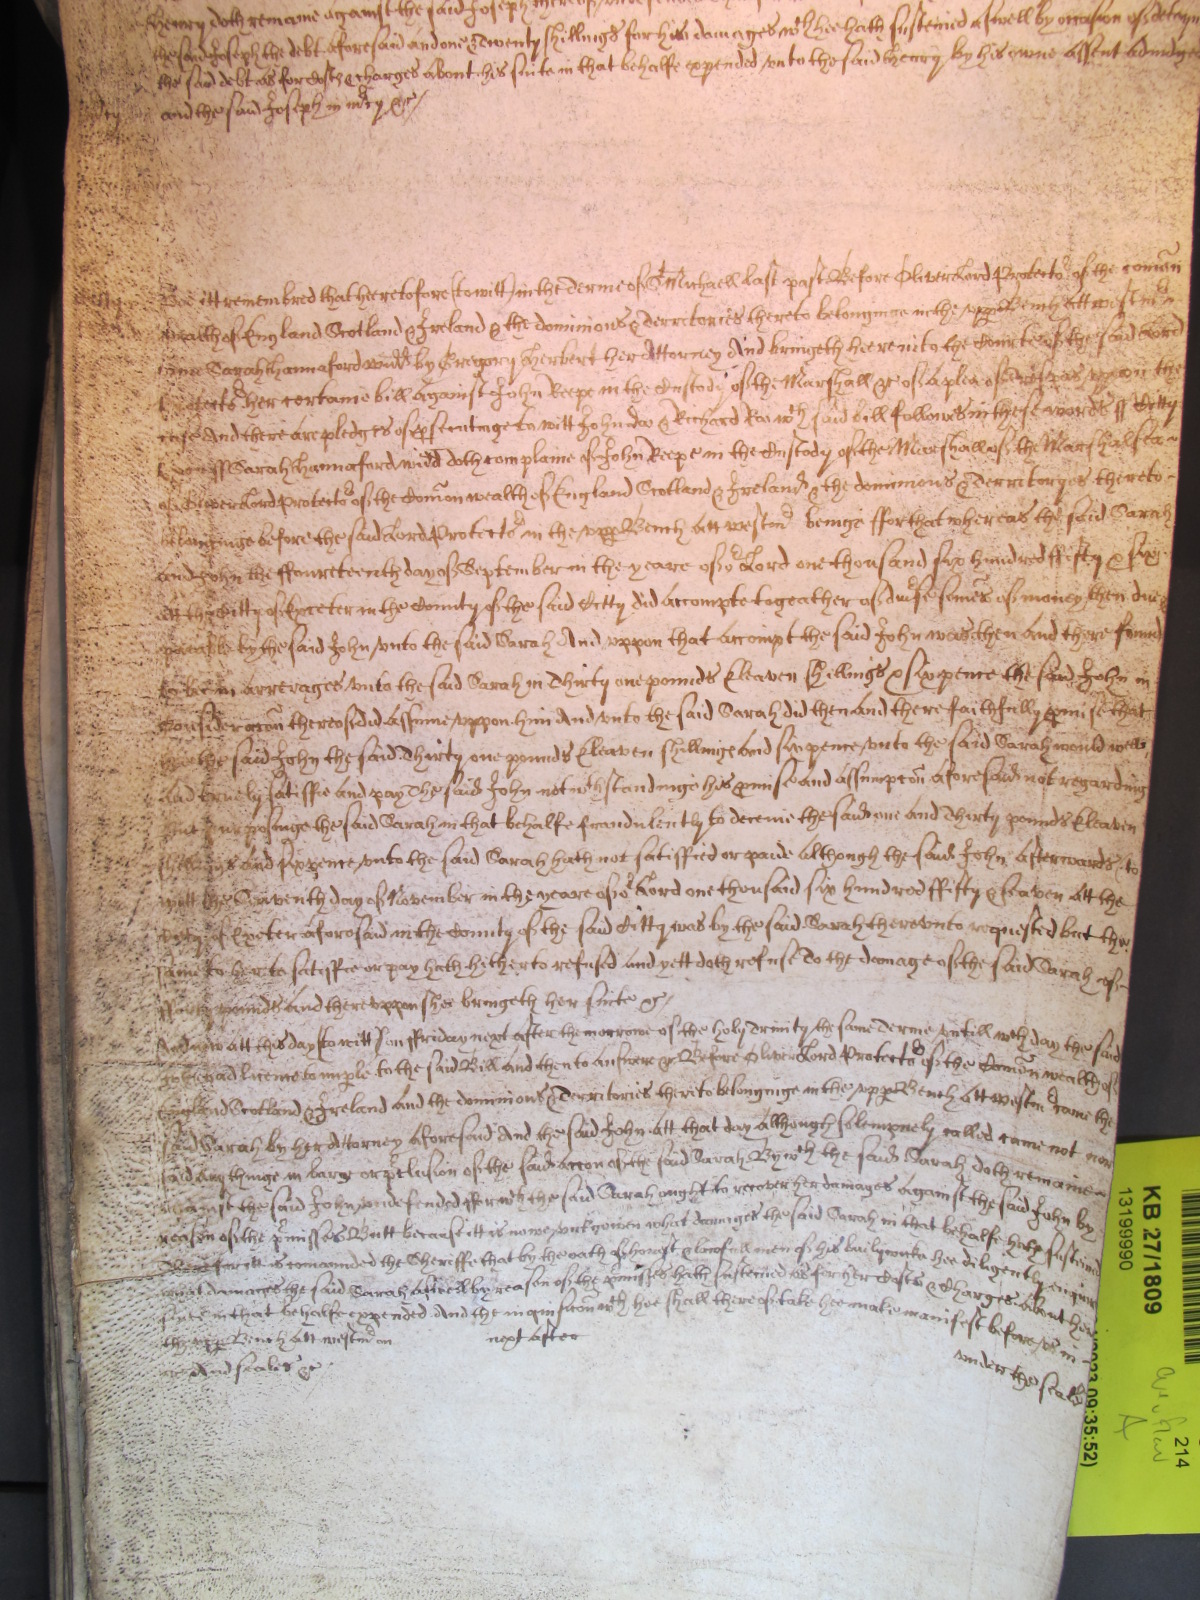 Henry doth remaine against the said Joseph thereof
the said Joseph the debt aforesaid and one & Twenty shillings for his damages wch hee hath susteined aswell by occasion of deteyning
the said debt as for Costs & charges about his suite in that behalfe expended vnto the said Henry by his owne Assent adiudged
and the said Joseph in mcy &c /
Bee itt remembred that heretofore (to witt) in the Terme of St Michaell last past Before Oliver Lord Protector of the comon
wealth of England Scotland & Ireland & the dominions & Territories thereto belonginge in the vpper Bench Att westmr
came Sarah Hannaford widd by Gregory Herbert her Attorney And bringeth heere into the Courte of the said Lord
Protector her certaine bill against John Keepe in the Custody of the Marshall &c of a plea of Trespas vppon the
case And there are pledges of psecutinge to witt John doo & Richard Roo wch said bill followes in these words ss Citty
Exon ss Sarah Hannaford widd doth complaine of John Keepe in the Custody of the Marshall of the Marshalsea
of Oliver Lord Protector of the Comon wealth of England Scotland & Ireland & the dominions & Territoryes thereto
belonginge before the said Lord Protector in the vpper Bench Att westmr beinge ffor that whereas the said Sarah
and John the ffoureteenth day of September in the yeare of or Lord one thousand six hundred ffifty & six
Att the Citty of Exceter in the County of the said Citty did Accompte togeather of diuse somes of money then due &
payable by the said John vnto the said Sarah And vppon that Accompt the said John was then and there found
to bee in arrerages vnto the said Sarah in Thirty one pounds Eleaven shillings & sixpence the said John in
Consideracon thereof did Assume vppon him And vnto the said Sarah did then and there faithfully pmise that
hee the said John the said Thirty one pounds Eleaven shillinge and six pence vnto the said Sarah would well
and truely satisfie and pay The said John notwthstandinge his pmise and Assumpcon aforesaid not regarding
but purposinge the said Sarah in that behalfe fraudulently to deceiue the said one and Thirty pounds Eleaven
shillings and sixpence vnto the said Sarah hath not satisfied or paide Although the said John Afterwards to
witt the Seaventh day of November in the yeare of or Lord one thousand six hundred ffifty & seaven Att the
Citty of Exceter aforesaid in the County of the said Citty was by the said Sarah therevnto requested but the
same to her to satisfie or pay hath hitherto refused and yett doth refuse To the damage of the said Sarah of
fforty pounds And therevppon shee bringeth her suite &c /
And now att this day (to witt) on ffriday next after the morrowe of the holy Trinity the same Terme vntill wch day the said
John had licence to imple to the said Bill and then to answere &c Before Oliver Lord Protector of the Comon wealth of
England Scotland & Ireland and the dominions & Territories thereto belonginge in the vpper Bench Att westmr Came the
said Sarah by her Attorney aforesaid And the said John Att that day although solempnely called came not nor
said Any thinge in barre or pclusion of the said Accon of the said Sarah By wch the said Sarah doth remaine
against the said John vndefended ffor wch the said Sarah ought to recover her damages against the said John by
reason of the pmisses Butt because itt is now vnknowen what damages the said Sarah in that behalfe hath susteined
Therefore itt is comaunded the Sheriffe that by the oath of honest & lawfull men of his bailywicke hee diligently enquire
what damages the said Sarah aswell by reason of the pmisses hath susteined as for her Costs & Charges About her
suite in that behalfe expended And the inquisicon wch hee shall thereof take hee make manifest before vs in
the vpper Bench Att westmr on next after under the seale
&c And seales &c
KB 27/1809
13199990
214
09:35:52)